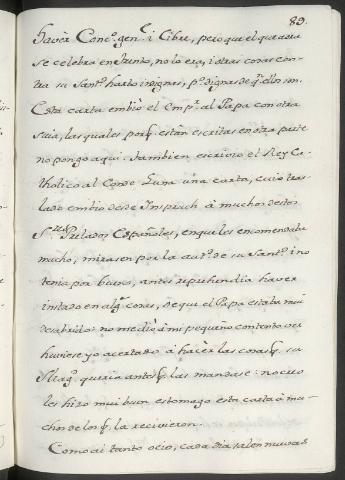 89.
haver Conc.º gen.l i Libre, pero que el que aora
se celebra en Trento, no lo era, i otras cosas con
tra su Sant.d harto indignas, p.º dignas de q.n
Esta carta embió el Emp.r al Papa con otra
suia, las quales porq. están escritas en otra parte
no pongo aqui. Tambien escrivio el Rey Ca-
tholico al Conde Luna una carta, cuio tras
lado embio desde Inspruch à muchos destos
S.res Prelados Españoles, en que les encomendaba
mucho, mirasen por la aut.d de su Sant.d i no
tenia por bueno, antes reprehendia haver
instado en alg.s cosas, de que el Papa estaba mui
desabrido: no me diò à mi pequeño contento ver
huviese yo acertado à hacèr las cosas q. su
Mag.d queria antes q. las mandase: no creo
les hizo mui buen estomago esta carta à mu-
chos de los q. la recivieron.
Como ai tanto ocio, cada dia salen nuevas